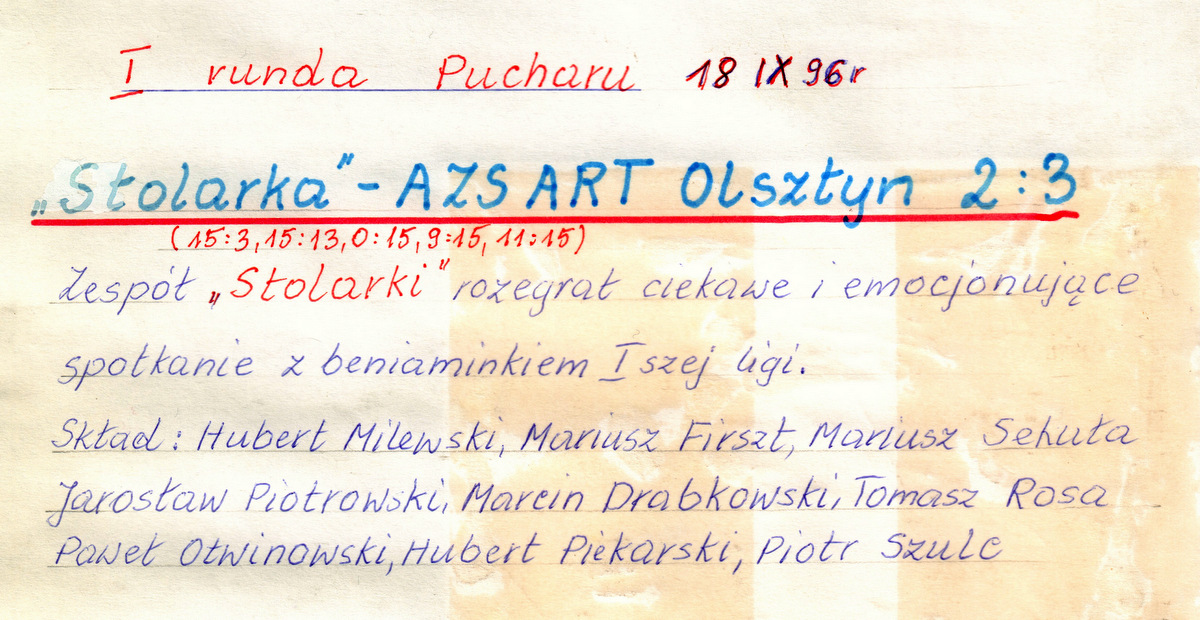 I runda Pucharu 18 IX 96r
„Stolarka” - AZS ART Olsztyn 2:3
(15:3, 15:13, 0:15, 9:15, 11:15)
Zespół „Stolarki” rozegrał ciekawe i emocjonujące
spotkanie z beniaminkiem I szej ligi.
Skład: Hubert Milewski, Mariusz Firszt, Mariusz Sehuła
Jarosław Piotrowski, Marcin Drabkowski, Tomasz Rosa
Paweł Otwinowski, Hubert Piekarski, Piotr Szulc